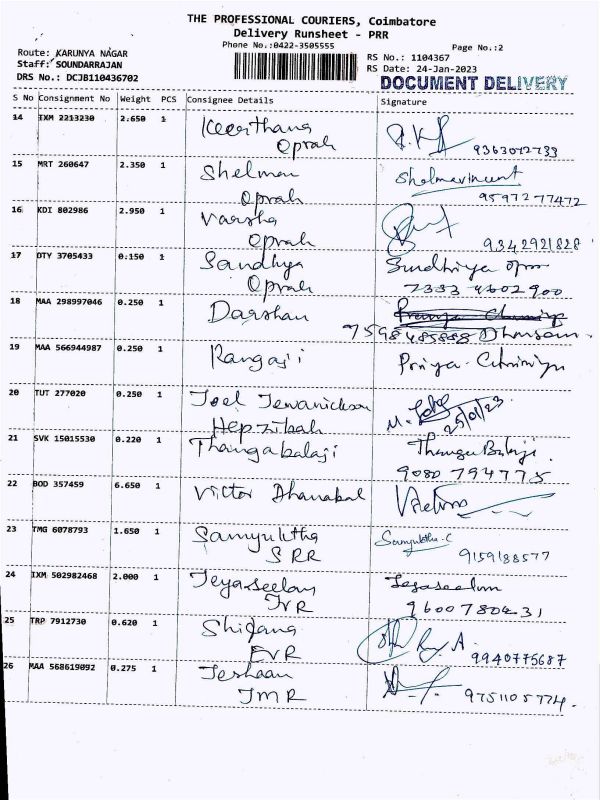 THE PROFESSIONAL COURIERS, Coimbatore
Delivery Runsheet - PRR
Phone No.:0422-3505555
Page No.:2
Route: KARUNYA NAGAR
RS No.: 1104367
Staff: SOUNDARRAJAN
RS Date: 24-Jan-2023
DRS No.: DCJB110436702
DOCUMENT DELIVERY
S No Consignment No Weight PCS Consignee Details Signature
14 IXM 2213230 2.650 1 Keerthana
Oprah 9363072733
15 MRT 260647 2.350 1 Shelman Shelmavincent
Oprah 9597277472
16 KDI 802986 2.950 1 Varsha
Oprah 9342921828
17 DTY 3705433 0.150 1 Sandhya
Oprah 7333 4602 900
18 MAA 298997046 0.250 1 Darshan
7598485888
19 MAA 566944987 0.250 1 Rangaji Priya
20 TUT 277020 0.250 1 Joel Jewanickson
Hepzibah 25/01/23
21 SVK 15015530 0.220 1 Thangabalaji Thangu Balaji
9080 794775
22 BOD 357459 6.650 1 Victor Dhanabal
23 TMG 6078793 1.650 1 Samyuktha Samyuktha-C
SRR 9159188577
24 IXM 502982468 2.000 1 Jeyaseelan Jeyaseelan
JVR 9600780431
25 TRP 7912730 0.620 1
EVR 9940775687
26 MAA 568619092 0.275 1 Jeshaan
JMR 9751105774.